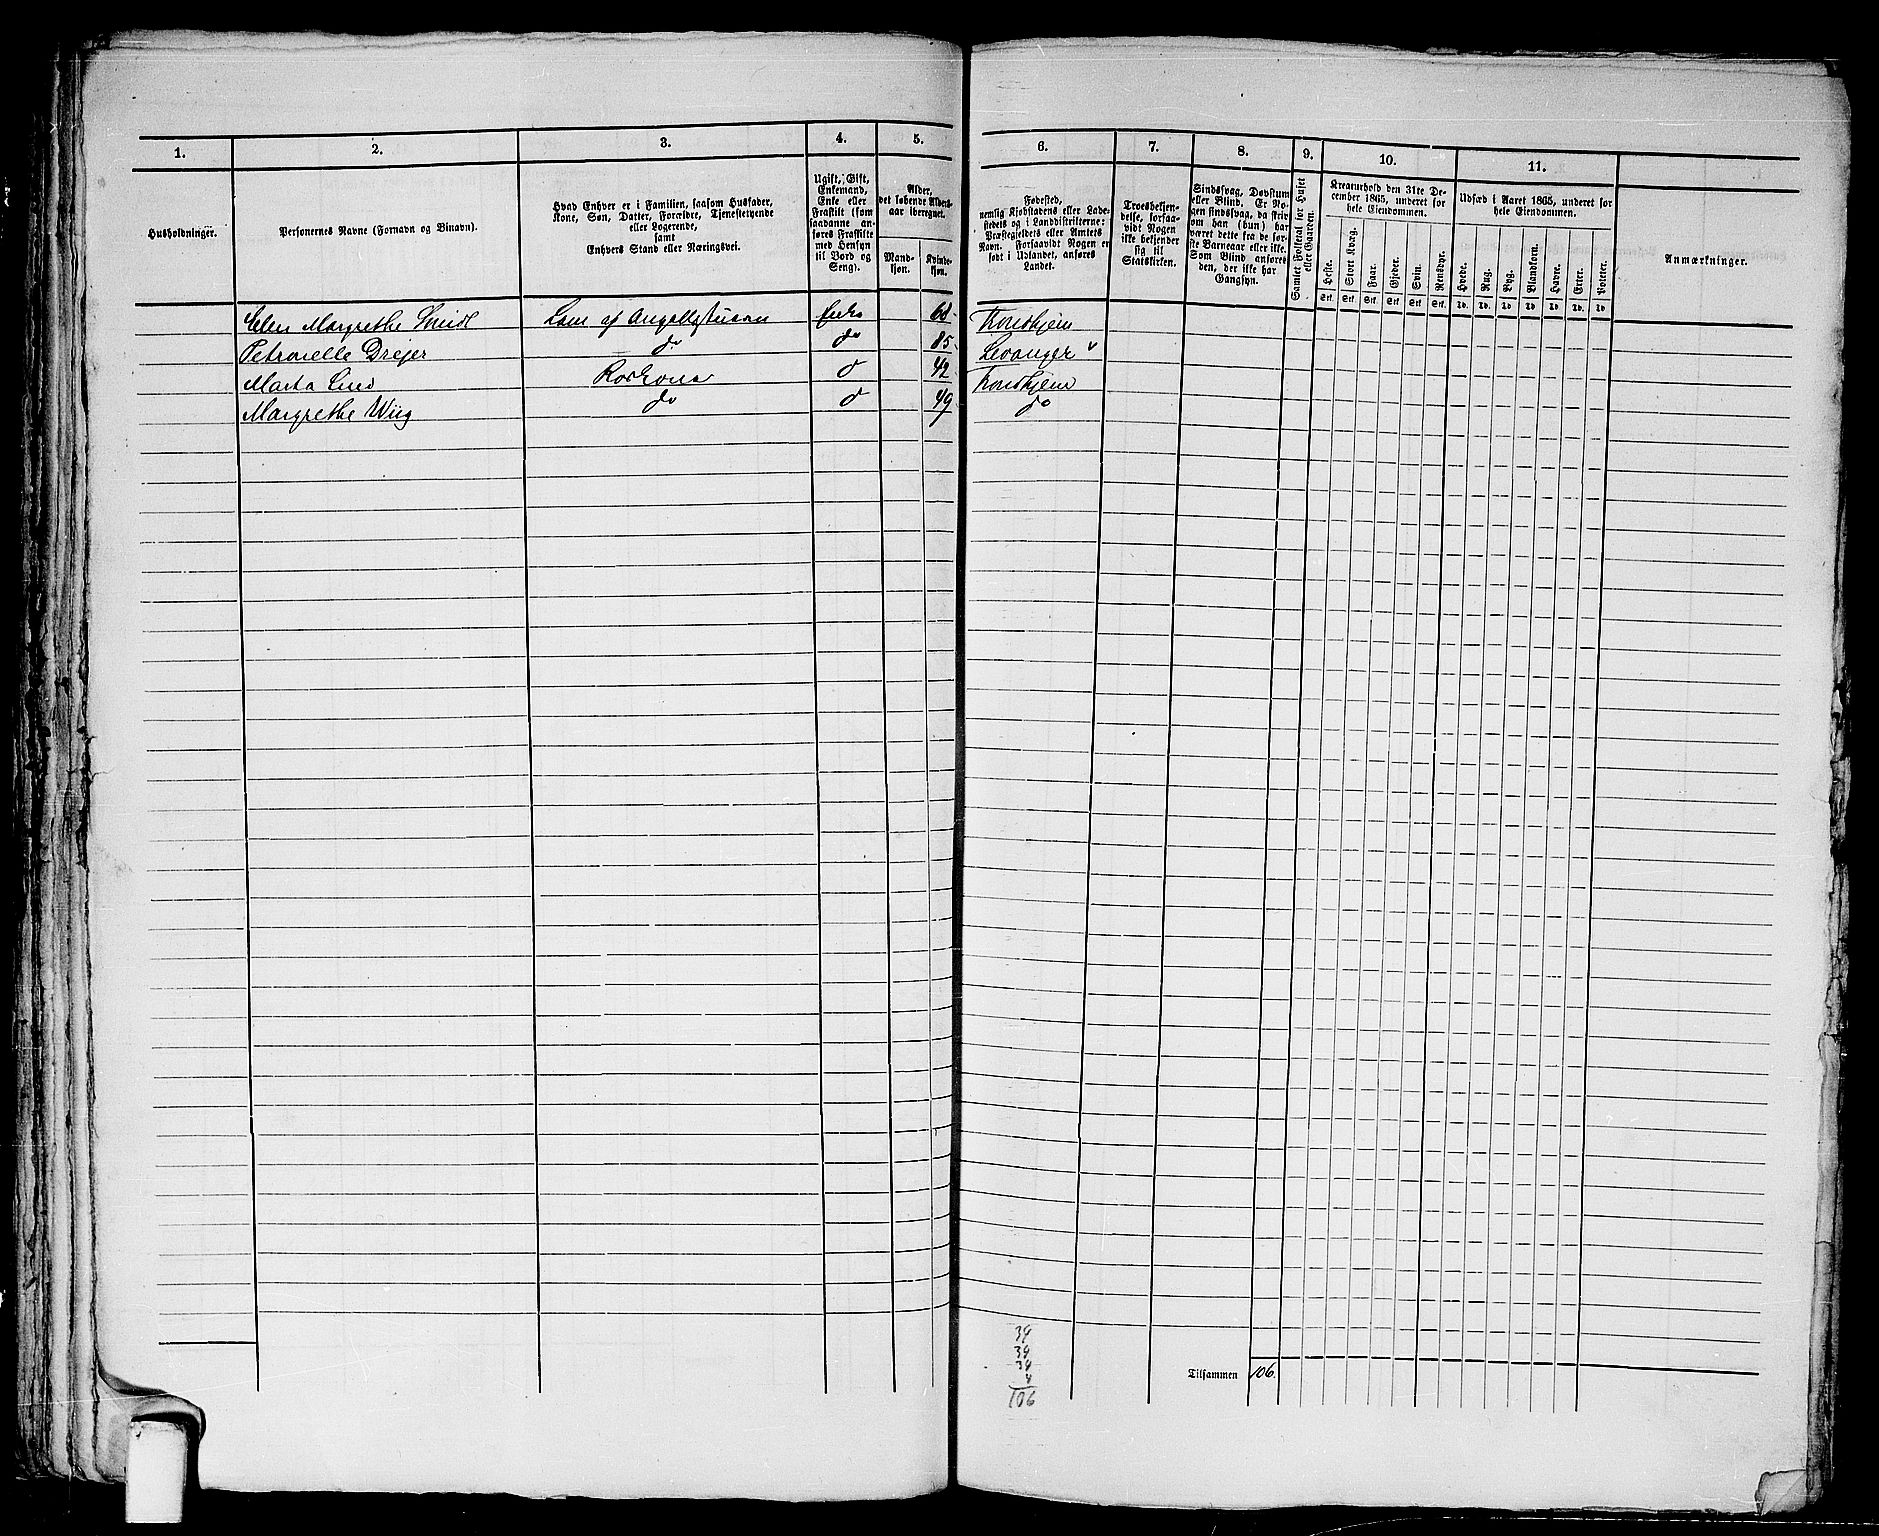 1.
2.
3.
4.
5.
Husholdninger.
Personernes Navne (Fornavn og Binavn).
Hvad Enhver er i Familien, saasom Husfader,
Kone, Søn, Datter, Forældre, Tjenestetyende
eller Logerende,
samt
Enhvers Stand eller Næringsvei.
Ugift, Gift,
Enkemand,
Enke eller
Fraskilt (som
saadanne an-
føres Fraskilte
med Hensyn
til Bord og
Seng).
Alder,
det løbende Alders-
aar iberegnet.
Mand-
kjøn.
Kvinde-
kjøn.
Elen Margrethe Smidt Lem af enke 68
Petronelle Drejer do do 85
Marta do 42
Margrethe Wiig do do 49
6.
7.
8.
9.
10.
11.
Fødested,
nemlig Kjøbstadens eller Lade-
stedets og i Landdistrikterne:
Præstegjeldets eller Amtets
Navn. Forsaavidt Nogen er
født i Udlandet, anføres
Landet.
Troesbekjen-
delse, forsaa-
vidt Nogen
ikke bekjender
sig til
Statskirken.
Sindssvag, Døvstum
eller Blind. Er No-
gen sindssvag, da skriv
om han (hun) har
været dette fra de før-
ste Barneaar eller ikke.
Som Blind anføres
den, der ikke har
Gangsyn.
Samlet Folketal for Huset
eller Gaarden.
Kreaturhold den 31te De-
cember 1865, underet for
hele Eiendommen.
Heste.
Stort Kvæg.
Faar.
Gjeder.
Svin.
Rensdyr.
Stk. Stk. Stk. Stk. Stk. Stk.
Udsæd i Aaret 1865, underet for
hele Eiendommen.
Hvede.
Rug.
Byg.
Blandkorn.
Havre.
Erter.
Poteter.
Td. Td. Td Td Td Td. Td
Anmærkninger.
Tronhjem
Levanger
Tronhjem
do
34
34
34
4
106
Tilsammen 106.